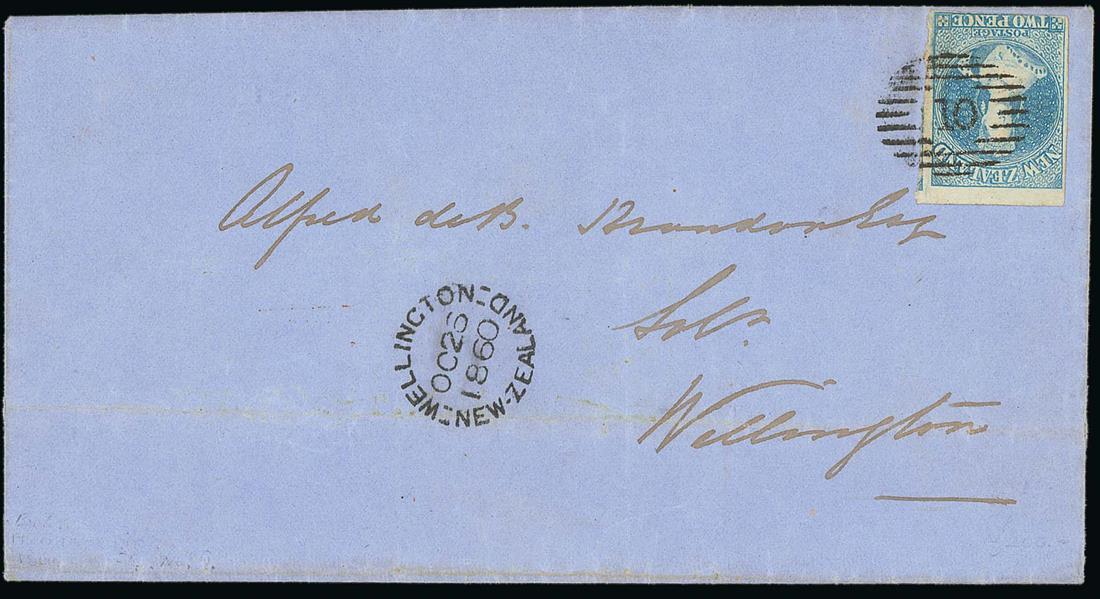 TWO PENCE
POSTAGE
NEW ZEALAND
10
Alfred de B. Brandon Esq
Solr
Wellington
WELLINGTON
OC 26
1860
NEW-ZEALAND